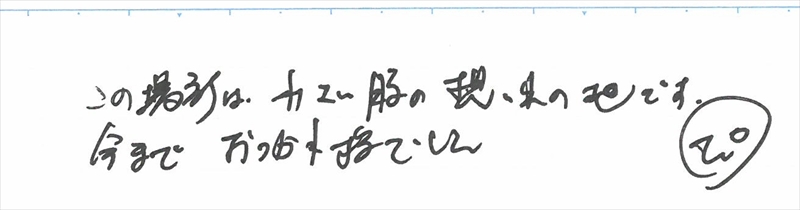 この場所は、カエル豚の想い出の地です。
今まで おつかれ様でした